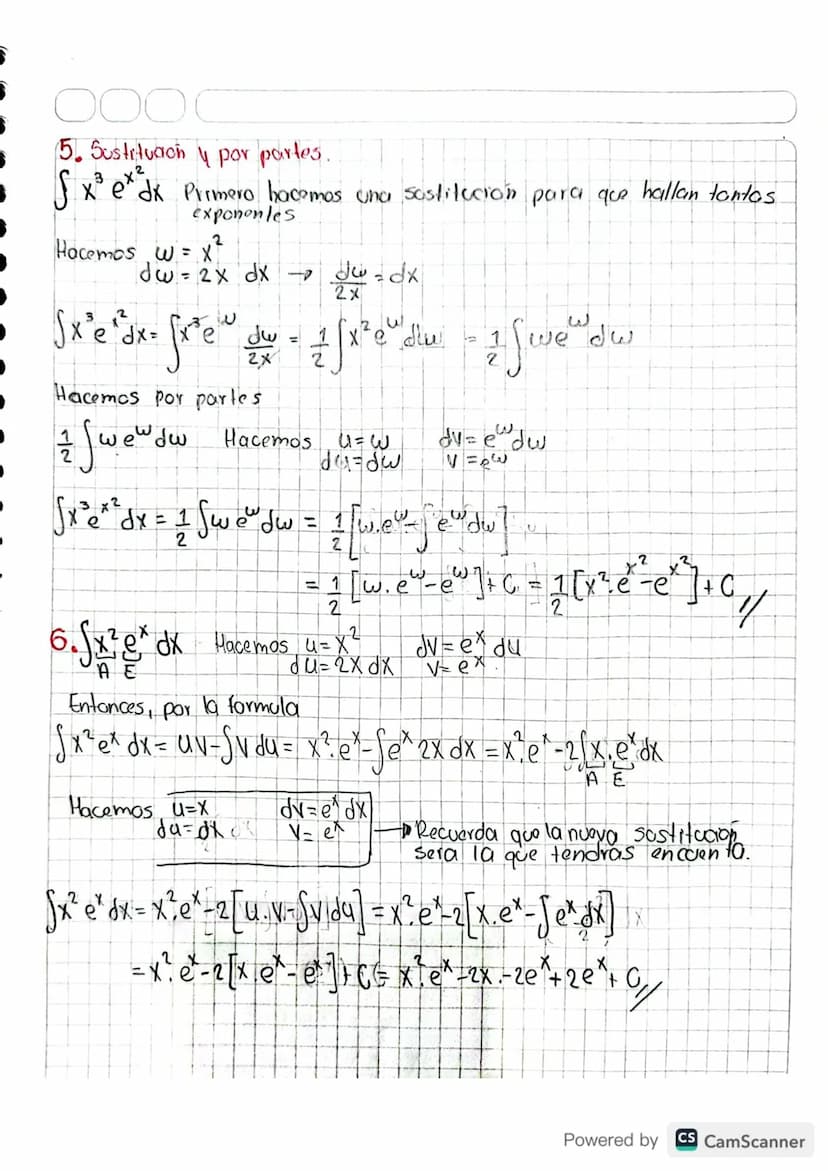 5. Sustitución y por partes.
∫ x³ e^x² dx Primero hacemos una sustitución para que hallan tantos
exponentes
Hacemos w = x²
dw = 2x dx → dw/2x = dx
∫x³e^x² dx = ∫x³e^w dw/2x = 1/2 ∫x² e^w dw = 1/2 ∫we^w dw
Hacemos por partes
1/2 ∫w e^w dw Hacemos u = w dv = e^w dw
du = dw v = e^w
∫x³e^x² dx = 1/2 ∫w e^w dw = 1/2 [w.e^w - ∫e^w dw]
= 1/2 [w.e^w - e^w] + C = 1/2 [x².e^x² - e^x²] + C //
6. ∫x² e^x dx Hacemos u = x² dv = e^x du
A E du = 2x dx v = e^x.
Entonces, por la formula
∫x² e^x dx = uv - ∫v du = x².e^x - ∫e^x 2x dx = x².e^x - 2∫x.e^x dx
A E
Hacemos u = x dv = e^x dx
du = dx v = e^x → Recuerda que la nueva sostitucion
sera la que tendras en cuenta.
∫x² e^x dx = x².e^x - 2[u.v - ∫v du] = x².e^x - 2[x.e^x - ∫e^x dx]
= x².e^x - 2[x.e^x - e^x] + C = x².e^x - 2x.-2e^x + 2e^x + C //
Powered by CS CamScanner